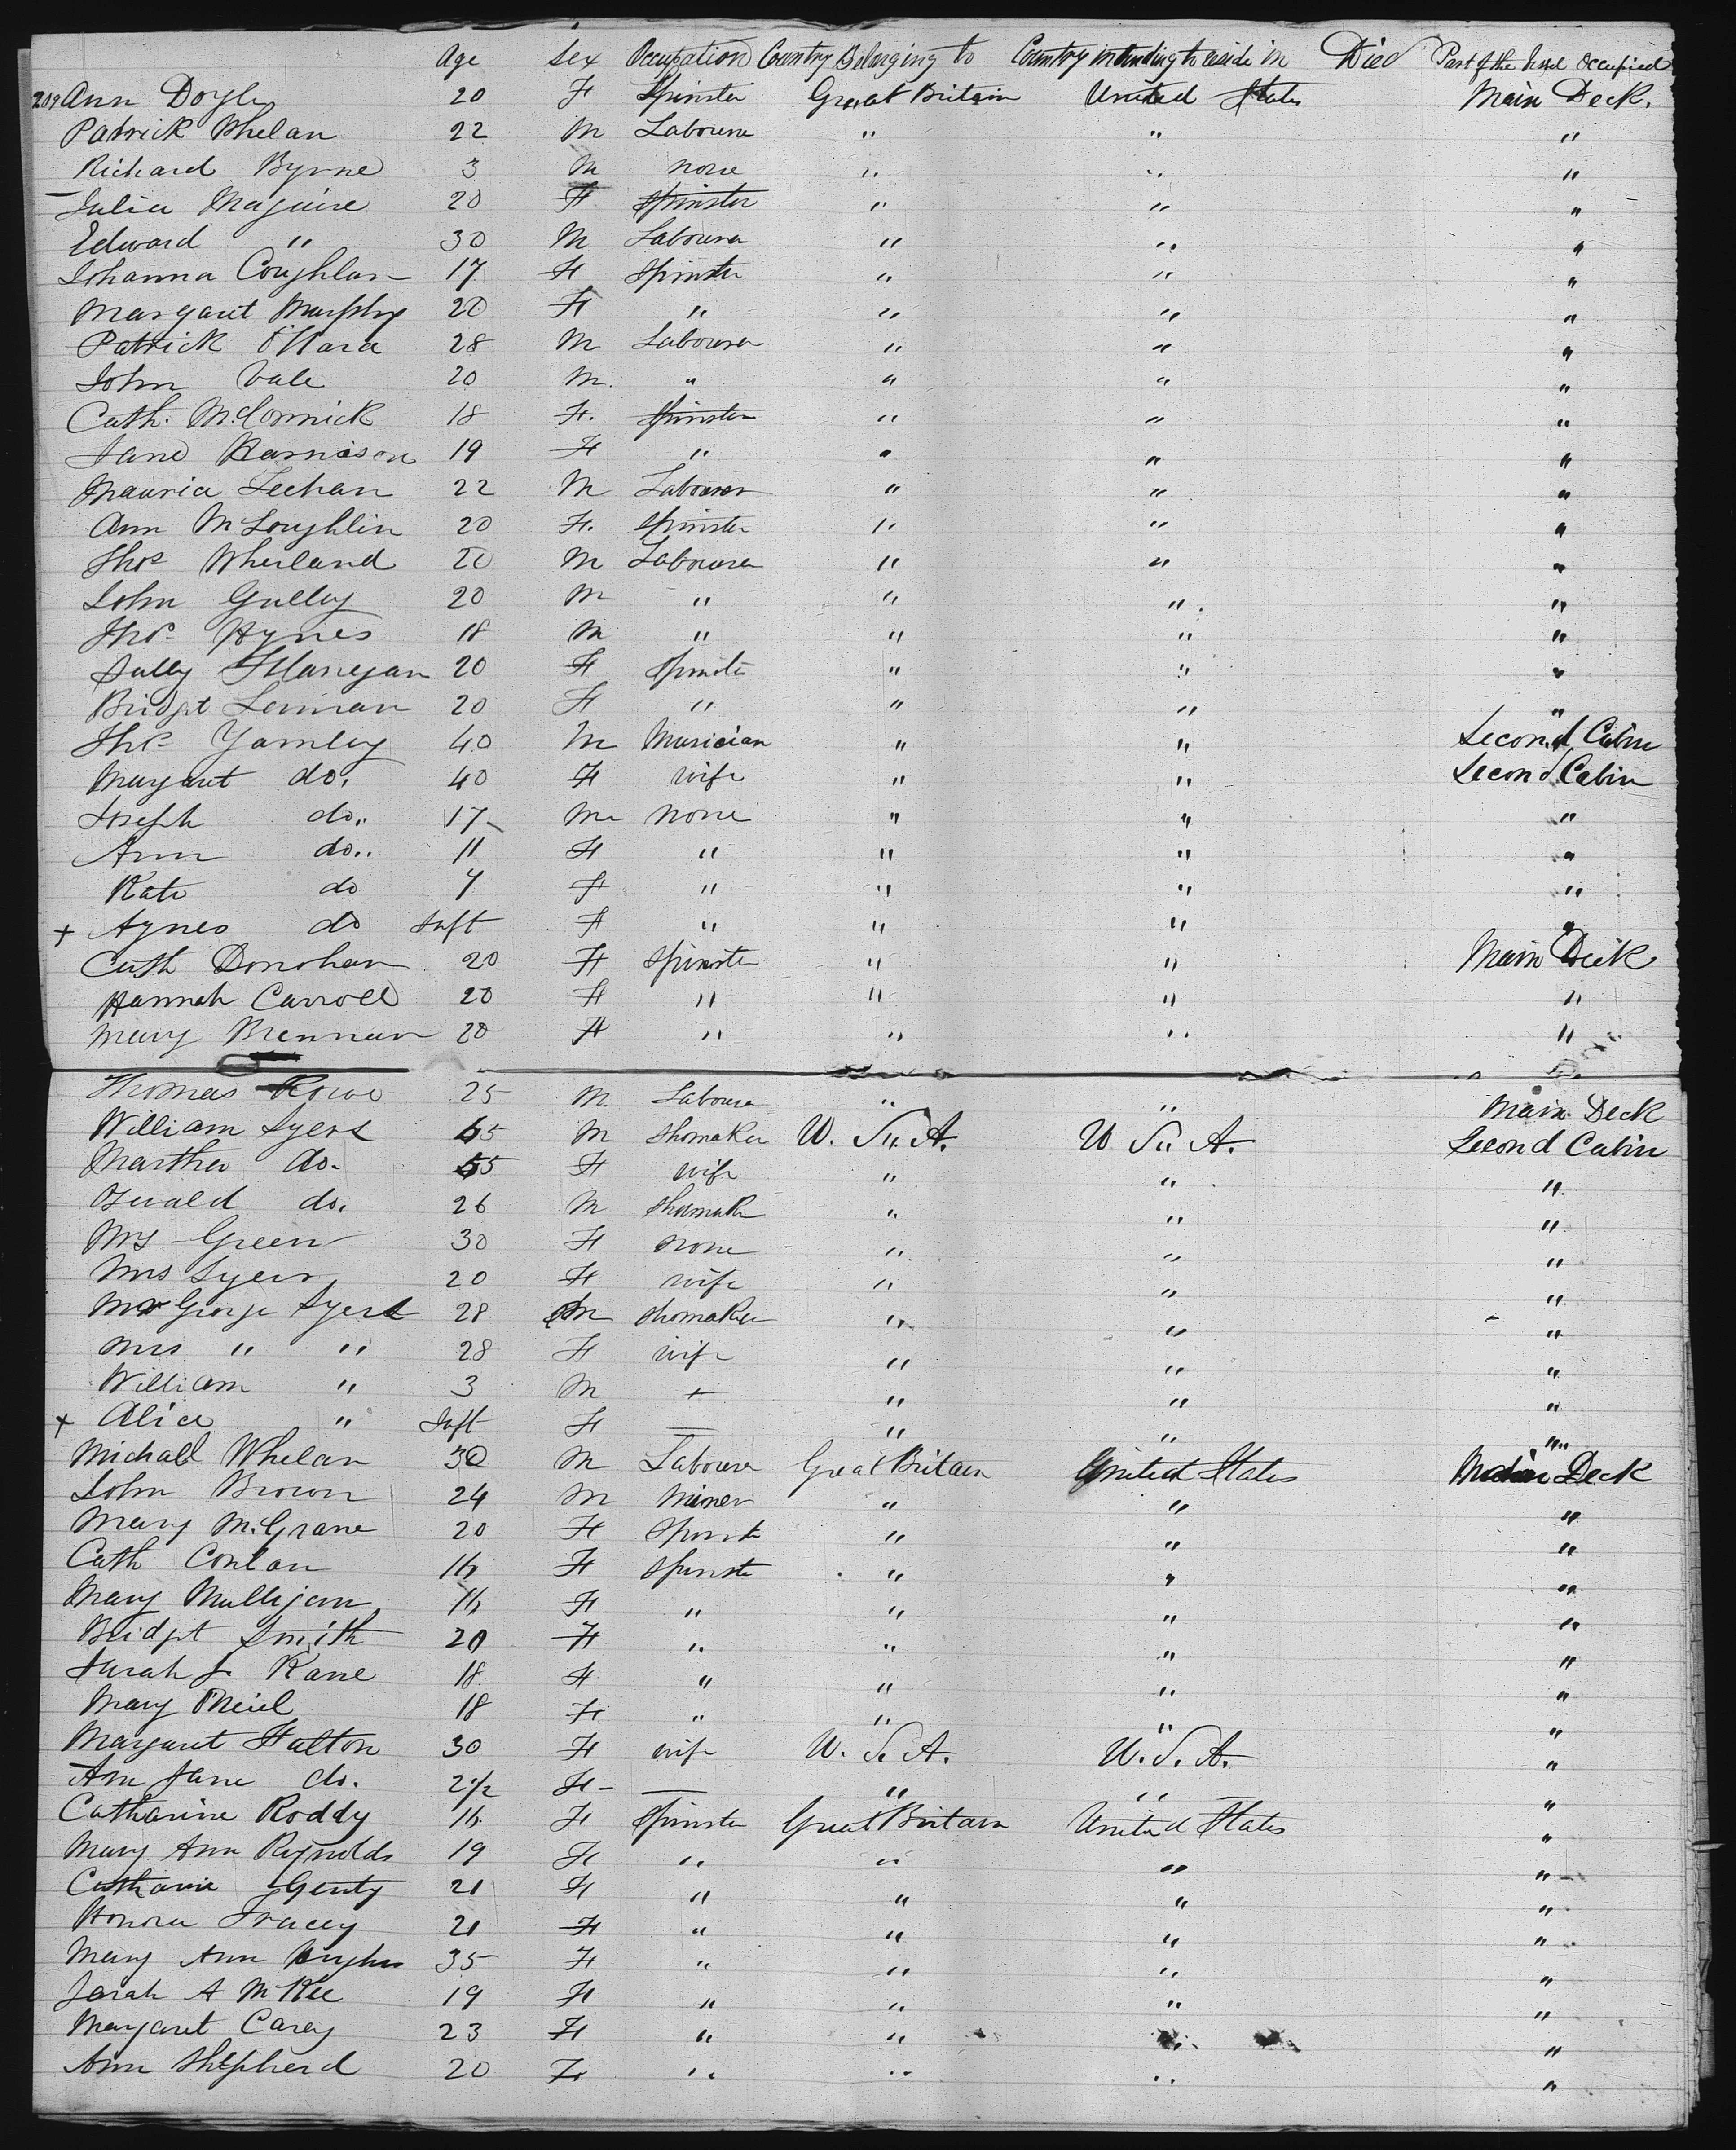 Age Sex Occupation Country Belonging to Country intending to reside in Died Part of the Vessel Occupied
209 Ann Doyle 20 F Spinster Great Britain United States Main Deck.
Patrick Whelan 22 M Labourer " " "
Richard Byrne 3 M none " " "
Julia Maguire 20 F Spinster " " "
Edward " 30 M Labourer " " "
Johanna Coughlan 17 F Spinster " " "
Margaret Murphy 20 F " " " "
Patrick O'Hara 28 M Labourer " " "
John Vale 20 M. " " " "
Cath. McCormick 18 F. Spinster " " "
Jane 19 F " " " "
Maurice Leehan 22 M Labourer " " "
Ann McLoughlin 20 F. Spinster " " "
Thos Wherland 20 M Labourer " " "
John Gulley 20 M " " " "
Thos Hynes 18 M " " " "
Sally Flanegan 20 F Spinster " " "
Bridgt 20 F " " " "
Thos Yamley 40 M Musician " " Second Cabin
Margaret do. 40 F wife " " Second Cabin
Joseph do. 17 M none " " "
Ann do.. 11 F " " " "
Kate do 7 F " " " "
+ Agnes do Inft F " " " "
Cath Donohan 20 F Spinster " " Main Deck
Hannah Carroll 20 F " " " "
Mary Brennan 20 F " " " "
Thomas Rowe 25 M. Labourer " " Main Deck
William Syers 65 M Shomaker U. S. A. U S. A. Second Cabin
Martha do. 55 F wife " " "
do. 26 M Shomaker " " "
Mrs Green 30 F none " " "
Mrs Syers 20 F wife " " "
Mr George Syers 28 M Shomaker " " "
Mrs " " 28 F wife " " "
William " 3 M + " " "
+ Alice " Inft F — " " "
Michall Whelan 30 M Labourer Great Britain United States Main Deck
John Brown 24 M Miner " " "
Mary McGrane 20 F Spinster " " "
Cath Conlan 16 F Spinster " " "
Mary Mulligan 16 F " " " "
Bridgt Smith 20 F " " " "
Sarah J. Kane 18 F " " " "
Mary O'Neil 18 F " " " "
Margaret Halton 30 F wife U. S. A. U. S. A. "
Ann Jane do. 2 1/2 F — " " "
Catharine Roddy 16 F Spinster Great Britain United States "
Mary Ann Reynolds 19 F " " " "
Catharine Genty 21 F " " " "
Honora Tracey 21 F " " " "
Mary Ann Hughes 35 F " " " "
Sarah A McKee 19 F " " " "
Margaret Carey 23 F " " " "
Ann Shepherd 20 F " " " "